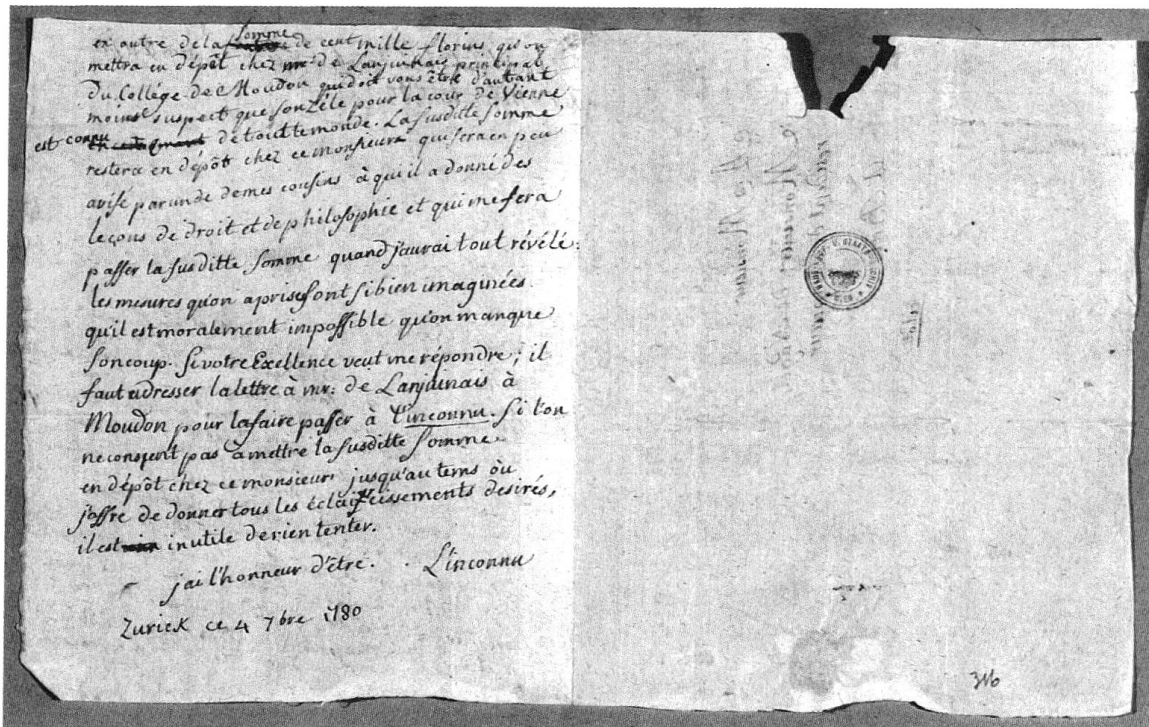 en outre de la somme de cent mille florins qu'on
mettra en dépôt chez mr. de Lanjuinais principal
du Collége de Moudon qui doit vous être d'autant
moins suspect que son zéle pour la cour de Vienne
est connu de tout le monde. La susditte somme
restera en dépôt chez ce monsieur qui sera en peu
avisé par un de mes cousins à qui il a donné des
leçons de droit et de philosophie et qui me fera
passer la susditte somme quand j'aurai tout révélé:
les mesures qu'on a prises sont si bien imaginées
qu'il est moralement impossible qu'on manque
son coup. si votre Excellence veut me répondre, il
faut adresser la lettre à mr: de Lanjuinais à
Moudon pour la faire passer à l'inconnu. Si l'on
ne consent pas a mettre la susditte somme
en dépôt chez ce monsieur jusqu'au tems òu
j'offre de donner tous les éclaircissements desirés,
il est inutile de rien tenter.
jai l'honneur d'être. L'inconnu
Zurick ce 4 7bre 1780
316